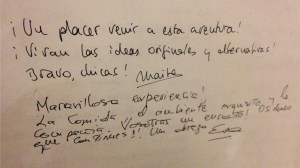 ¡Un placer venir a esta aventura!
¡Vivan las ideas originales y alternativas!
Bravo, chicas! Maite
Maravillosa experiencia!
La comida el ambiente exquisito y la
compañía. Vosotras un encanto! Os deseo
que continues!! Un abrazo